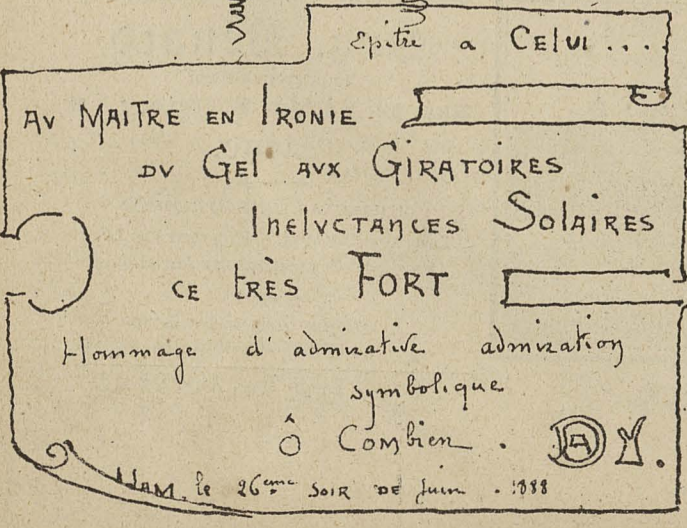 Epitre a CElUi ...
AV MAITRE EN IRONIE
DV GEl AUX GIRATOIRES
INElVCTANCES SOlAIRES
CE tRÈS FORT
Hommage d'admirative admiration
symbolique
Ô Combien .
le 26eme SOIR DE Juin . 1888